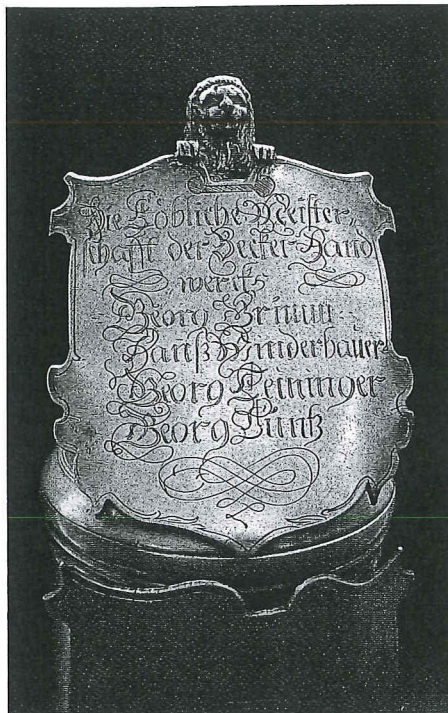 Die Löbliche Meister-
schafft der Becker-Hand
wercks
Georg
Hanß Winderbauer
Georg Deininger
Georg